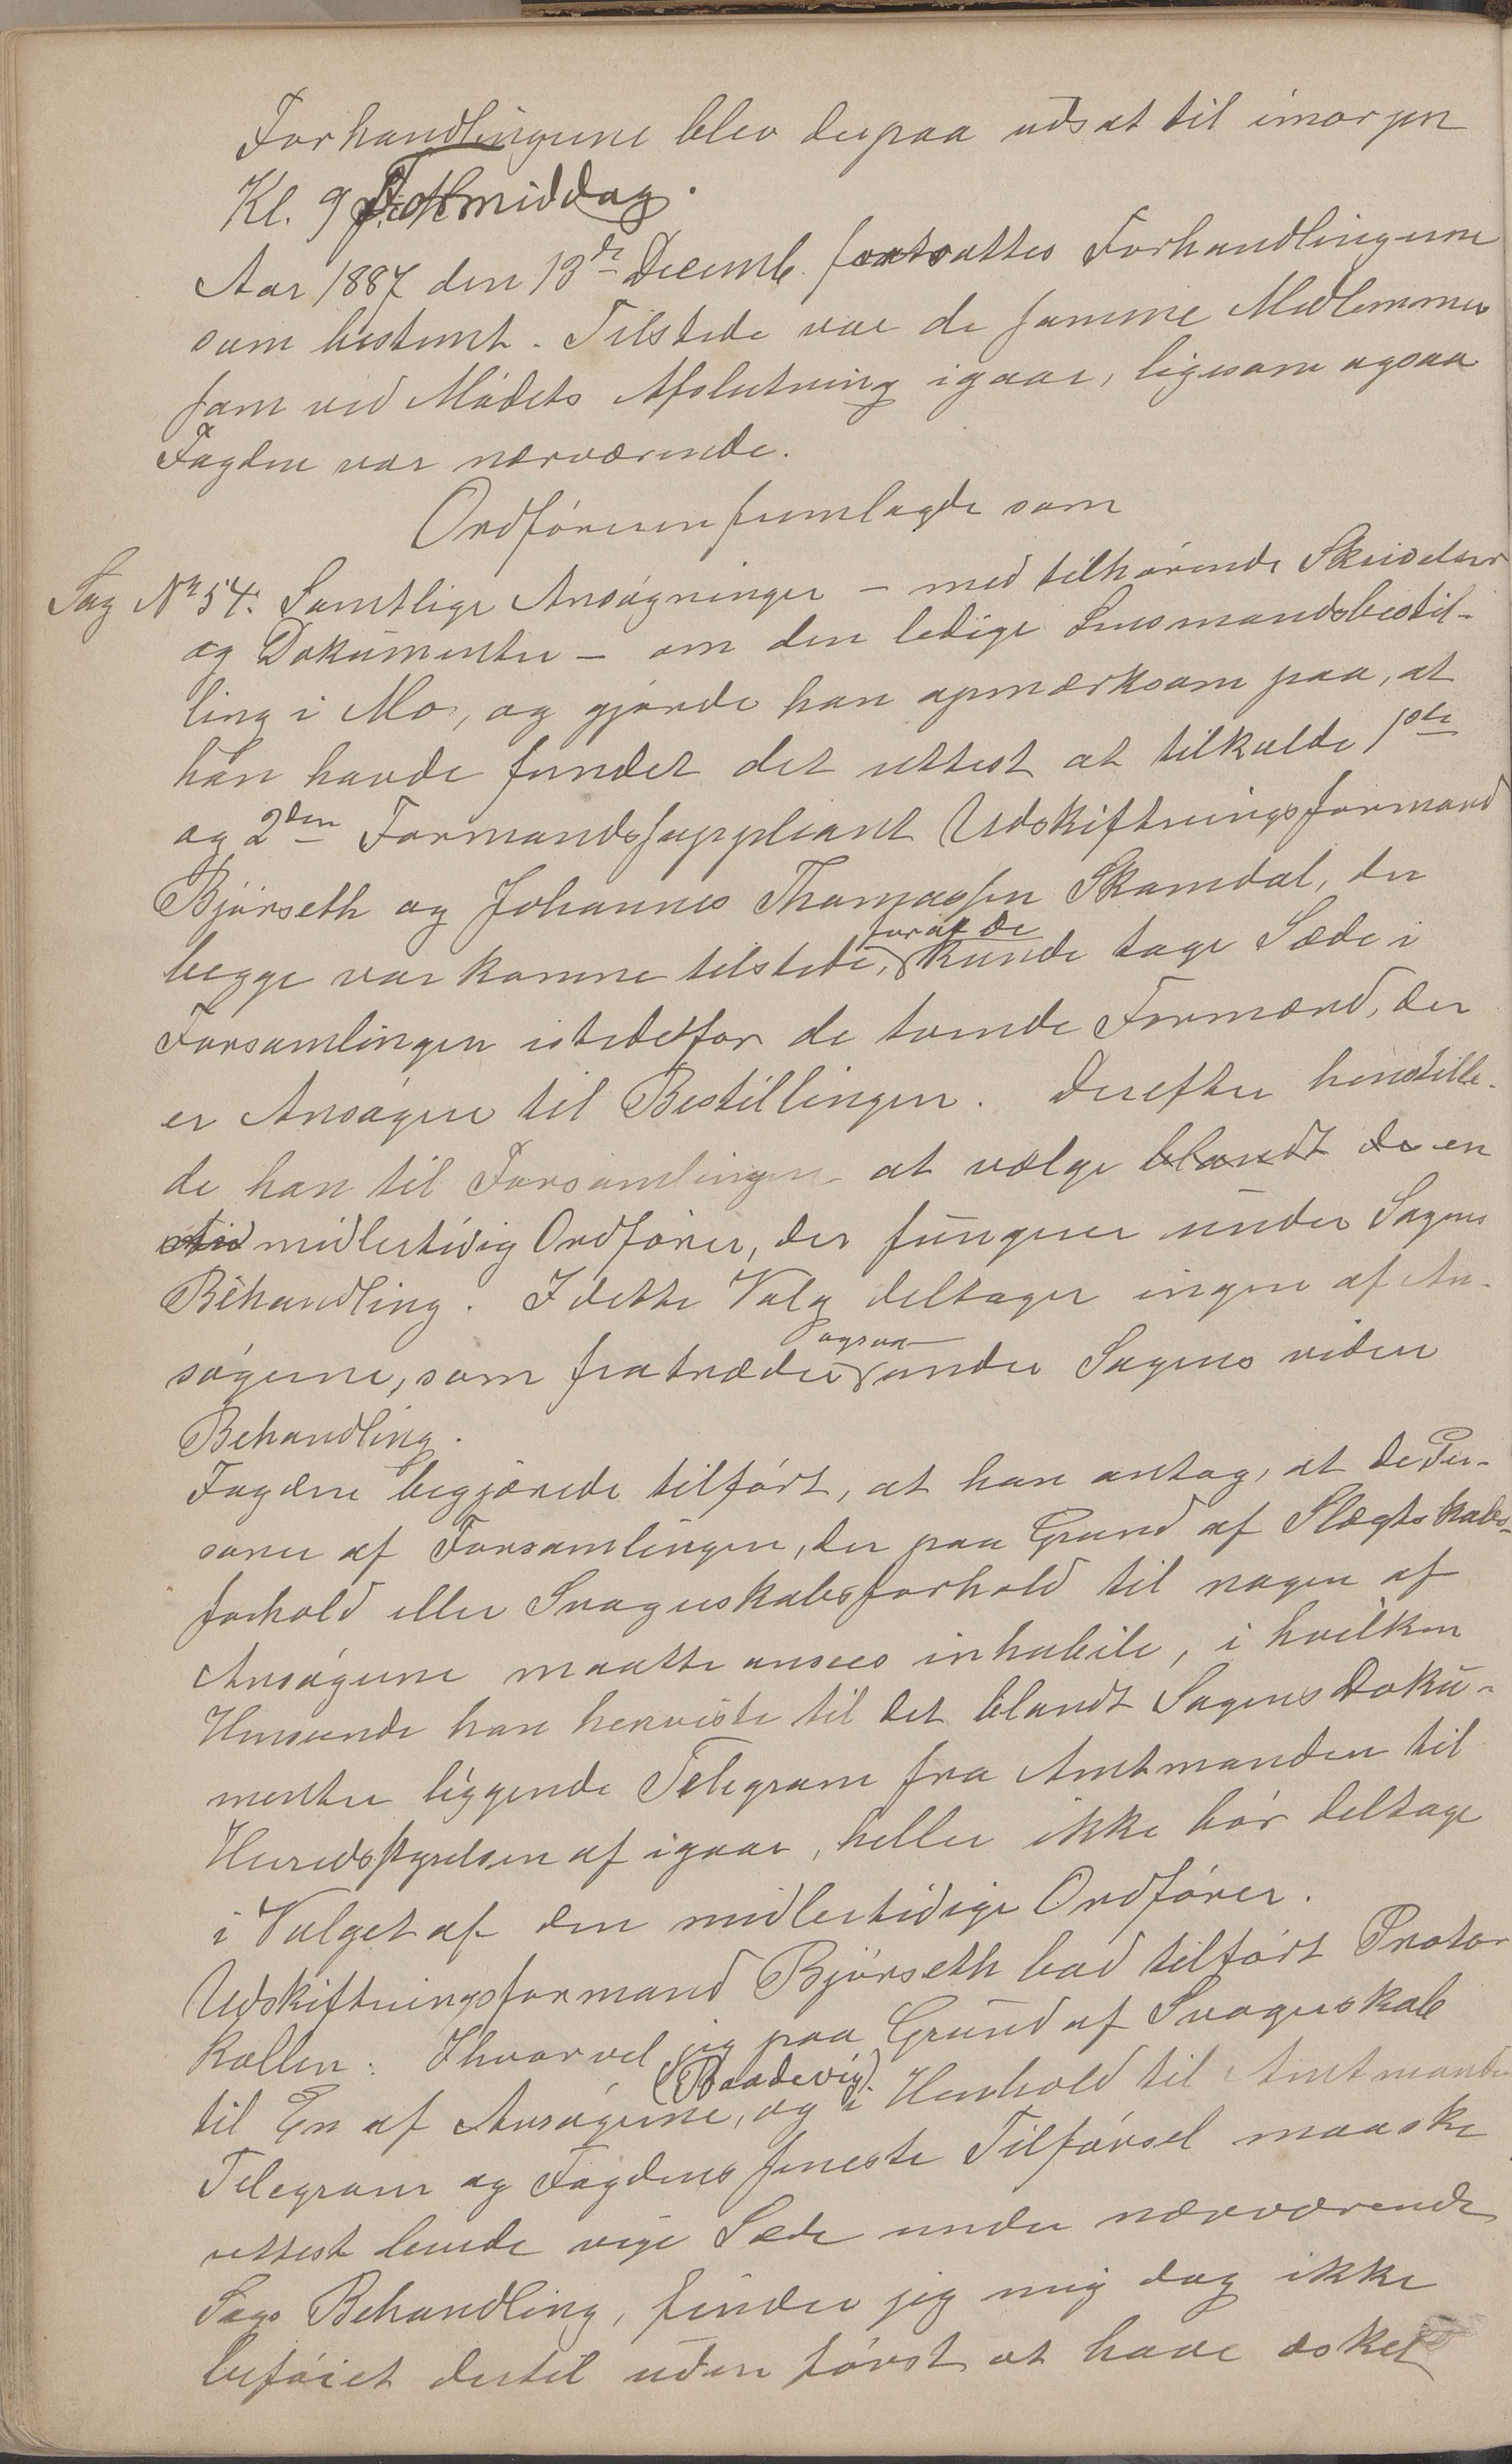 Forhandlingerne blev derpaa udsat til imorgen
Kl. 9 Formiddag.
Aar 1887 den 13de Decemb. fortsattes Forhandlingerne
som bestemt. Tilstede var de samme Medlemmer
som ved Mødets Afslutning igaar, ligesom ogsaa
Fogden var nærværende.
Ordføreren fremlagde som
Sag No 54: Samtlige Ansøgninger - med tilhørende Skrivelser
og Dokumenter - om den ledige Lensmandsbestil-
ling i Mo, og gjorde han opmærksom paa, at
han havde fundet det rettest at tilkalde 1ste
og 2den Formandssuppleant Udskiftningsformand
Bjørseth og Johannes Thomassen Skamdal, der
begge var komne tilstede, forat de kunde tage Sæde i
Forsamlingen istedetfor de tvende Formænd, der
er Ansøgere til Bestillingen. Derefter henstille-
de han til Forsamlingen at vælge blandt de en
midlertidig Ordfører, der fungerer under Sagens
Behandling. I dette Valg deltager ingen af An-
søgerne, som fratræder ogsaa under Sagens videre
Behandling.
Fogden begjærede tilført, at han antog, at de Per-
soner af Forsamlingen, der paa Grund af Slægtskabs-
forhold eller Svogerskabsforhold til nogen af
Ansøgerne maatte ansees inhabile, i hvilken
Henseende han henviste til det blandt Sagens Doku-
menter liggende Telegram fra Amtmanden til
Herredsstyrelsen af igaar, heller ikke bør deltage
i Valget af den midlertidige Ordfører.
Udskiftningsformand Bjørseth bad tilført Proto-
kollen: Ihvorvel jeg paa Grund af Svogerskab
til En af Ansøgerne, (Baadevig) og i Henhold til Amtmanden
Telegram og Fogdens seneste Tilførsel maaske
rettest burde vige Sæde under nærværende
Sags Behandling, finder jeg mig dog ikke
beføiet dertil uden først at have æsket